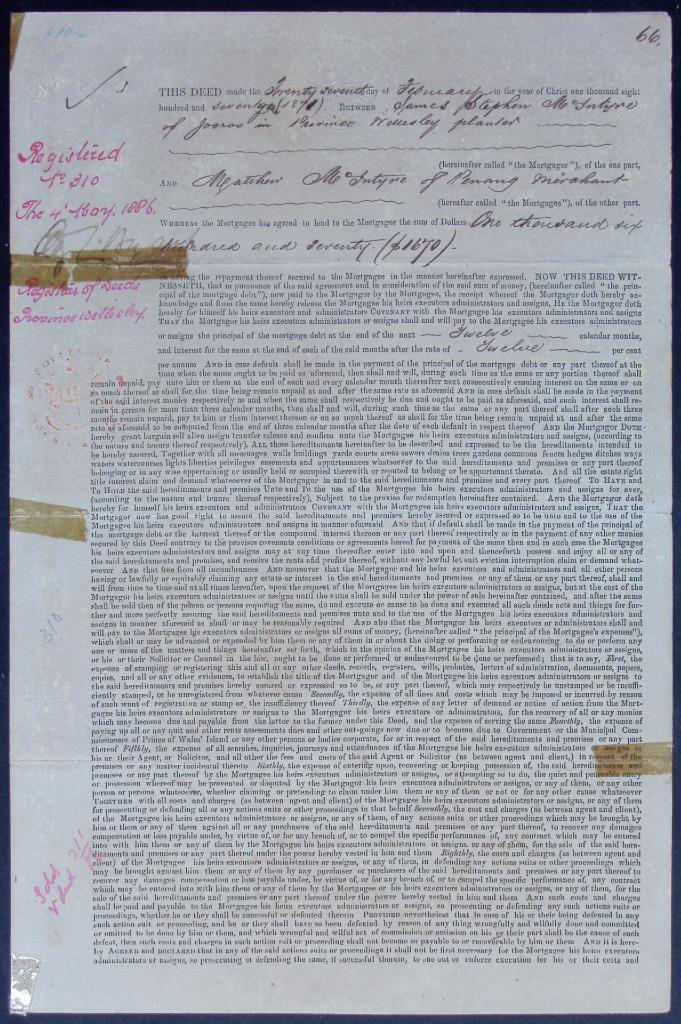 66.
THIS DEED made the Twenty seventh day of February in the year of Christ one thousand eight
hundred and seventy (1871). BETWEEN James Stephen McIntyre
of Jooroo in Province Wellesley planter
(hereinafter called "the Mortgagor"), of the one part,
AND Matthew McIntyre of Penang Merchant
(hereafter called "the Mortgagee"), of the other part.
WHEREAS the Mortgagee has agreed to lend to the Mortgagor the sum of Dollars One thousand six
hundred and seventy. ($1670)
Registered
No 310
The 4 May, 1886.
Registrar of Deeds
Province Wellesley.
having the repayment thereof secured to the Mortgagee in the manner hereinafter expressed. NOW THIS DEED WIT-
NESSETH, that in pursuance of the said agreement and in consideration of the said sum of money, (hereinafter called "the prin-
cipal of the mortgage debt"), now paid to the Mortgagor by the Mortgagee, the receipt whereof the Mortgagor doth hereby ac-
knowledge and from the same hereby release the Mortgagee his heirs executors administrators and assigns, HE the Mortgagor doth
hereby for himself his heirs executors and administrators COVENANT with the Mortgagee his executors administrators and assigns
THAT the Mortgagor his heirs executors administrators or assigns shall and will pay to the Mortgagee his executors administrators
or assigns the principal of the mortgage debt at the end of the next Twelve calendar months,
and interest for the same at the end of each of the said months after the rate of Twelve per cent
per annum AND in case default shall be made in the payment of the principal of the mortgage debt or any part thereof at the
time when the same ought to be paid as aforesaid, then shall and will, during such time as the same or any portion thereof shall
remain unpaid, pay unto him or them at the end of each and every calendar month thereafter next consecutively ensuing interest on the same or on
so much thereof as shall for the time being remain unpaid at and after the same rate as aforesaid AND in case default shall be made in the payment
of the said interest monies respectively as and when the same shall respectively be due and ought to be paid as aforesaid, and such interest shall re-
main in arrears for more than three calendar months, then shall and will, during such time as the same or any part thereof shall after such three
months remain unpaid, pay to him or them interest thereon or on so much thereof as shall for the time being remain unpaid at and after the same
rate as aforesaid to be computed from the end of three calendar months after the date of each default in respect thereof AND the Mortgagor DOTH
hereby grant bargain sell alien assign transfer release and confirm unto the Mortgagee his heirs executors administrators and assigns, (according to
the nature and tenure thereof respectively). ALL those hereditaments hereinafter to be described and expressed to be the hereditaments intended to
be hereby assured, Together with all messuages walls buildings yards courts areas sewers drains trees gardens commons fences hedges ditches ways
waters watercourses lights liberties privileges easements and appurtenances whatsoever to the said hereditaments and premises or any part thereof
belonging or in any wise appertaining or usually held or occupied therewith or reputed to belong or be appurtenant thereto. And all the estate right
title interest claim and demand whatsoever of the Mortgagor in and to the said hereditaments and premises and every part thereof TO HAVE and
TO HOLD the said hereditaments and premises Unto and To the use of the Mortgagee his heirs executors administrators and assigns for ever,
(according to the nature and tenure thereof respectively), Subject to the proviso for redemption hereinafter contained. AND the Mortgagor doth
hereby for himself his heirs executors and administrators COVENANT with the Mortgagee his heirs executors administrators and assigns, THAT the
Mortgagor now has good right to assure the said hereditaments and premises hereby assured or expressed so to be unto and to the use of the
Mortgagee his heirs executors administrators and assigns in manner aforesaid AND that if default shall be made in payment of the principal of
the mortgage debt or the interest thereof or the compound interest thereon or any part thereof respectively or in the payment of any other monies
secured by this Deed contrary to the provisos covenants conditions or agreements hereof for payment of the same then and in such case the Mortgagee
his heirs executors administrators and assigns may at any time thereafter enter into and upon and thenceforth possess and enjoy all or any of
the said hereditaments and premises, and receive the rents and profits thereof, without any lawful let suit eviction interruption claim or demand what-
soever AND that free from all incumbrances AND moreover that the Mortgagor and his heirs executors and administrators and all other persons
having or lawfully or equitably claiming any estate or interest in the said hereditaments and premises or any of them or any part thereof, shall and
will from time to time and at all times hereafter, upon the request of the Mortgagee his heirs executors administrators or assigns, but at the cost of the
Mortgagor his heirs executors administrators or assigns until the same shall be sold under the power of sale hereinafter contained, and after the same
shall be sold then of the person or persons requiring the same, do and execute or cause to be done and executed all such deeds acts and things for fur-
ther and more perfectly assuring the said hereditaments and premises unto and to the use of the Mortgagee his heirs executors administrators and
assigns in manner aforesaid as shall or may be reasonably required AND also that the Mortgagor his heirs executors or administrators shall and
will pay to the Mortgagee his executors administrators or assigns all sums of money, (hereinafter called "the principal of the Mortgagee's expenses"),
which shall or may be advanced or expended by him them or any of them in or about the doing or performing or endeavouring to do or perform any
one or more of the matters and things hereinafter set forth, which in the opinion of the Mortgagee his heirs executors administrators or assigns,
or his or their Solicitor or Counsel in the law, ought to be done or performed or endeavoured to be done or performed; that is to say, First, the
expense of stamping or registering this and all or any other deeds, records, registers, wills, probates, letters of administration, documents, papers,
copies, and all or any other evidences, to establish the title of the Mortgagor and of the Mortgagee his heirs executors administrators or assigns to
the said hereditaments and premises hereby assured or expressed so to be, or any part thereof, which may respectively be unstamped or be insuffi-
ciently stamped, or be unregistered from whatever cause Secondly, the expense of all fines and costs which may be imposed or incurred by reason
of such want of registration or stamp or, the insufficiency thereof Thirdly, the expense of any letter of demand or notice of action from the Mort-
gagee his heirs executors administrators or assigns to the Mortgagor his heirs executors or administrators, for the recovery of all or any monies
which may become due and payable from the latter to the former under this Deed, and the expense of serving the same Fourthly, the expense of
paying up all or any quit and other rents assessments dues and other out-goings now due or to become due to Government or the Municipal Com-
missioners of Prince of Wales' Island or any other persons or bodies corporate, for or in respect of the said hereditaments and premises or any part
thereof Fifthly, the expense of all searches, inquiries, journeys and attendances of the Mortgagee his heirs executors administrators or assigns or
his or their Agent, or Solicitor, and all other the fees and costs of the said Agent or Solicitor (as between agent and client,) in respect of the
premises or any matter incidental thereto Sixthly, the expense of entering upon, recovering or keeping possession of, the said hereditaments and
premises or any part thereof by the Mortgagee his heirs executors administrators or assigns, or attempting so to do, the quiet and peaceable entry
or possession whereof may be prevented or disputed by the Mortgagor his heirs executors administrators or assigns, or any of them, or any other
person or persons whatsoever, whether claiming or pretending to claim under him them or any of them or not or for any other cause whatsoever
TOGETHER with all costs and charges (as between agent and client) of the Mortgagee his heirs executors administrators or assigns, or any of them
for prosecuting or defending all or any actions suits or other proceedings in that behalf Seventhly, the cost and charges (as between agent and client),
of the Mortgagee his heirs executors administrators or assigns, or any of them, of any actions suits or other proceedings which may be brought by
him or them or any of them against all or any purchasers of the said hereditaments and premises or any part thereof, to recover any damages
compensation or loss payable under, by virtue of, or for any breach of, or to compel the specific performance of, any contract which may be entered
into with him them or any of them by the Mortgagee his heirs executors administrators or assigns, or any of them, for the sale of the said here-
ditaments and premises or any part thereof under the power hereby vested in him and them Eighthly, the costs and charges (as between agent and
client) of the Mortgagee his heirs executors administrators or assigns, or any of them, in defending any actions suits or other proceedings which
may be brought against him them or any of them by any purchaser or purchasers of the said hereditaments and premises or any part thereof to
recover any damages compensation or loss payable under, by virtue of, or for any breach of, or to compel the specific performance of, any contract
which may be entered into with him them or any of them by the Mortgagee or his heirs executors administrators or assigns, or any of them, for the
sale of the said hereditaments and premises or any part thereof under the power hereby vested in him and them AND such costs and charges
shall be paid and payable to the Mortgagee his heirs executors administrators or assigns, so prosecuting or defending any such actions suits or
proceedings, whether he or they shall be successful or defeated therein PROVIDED nevertheless that in case of his or their being defeated in any
such action suit or proceeding, and he or they shall have so been defeated by reason of any thing wrongfully and wilfully done and committed
or omitted to be done by him or them, and which wrongful and wilful act of commission or omission on his or their part shall be the cause of such
defeat, then such costs and charges in such action suit or proceeding shall not become so payable to or recoverable by him or them AND it is here-
by AGREED and DECLARED that in any of the said actions suits or proceedings it shall not be first necessary for the Mortgagee his heirs executors
administrators or assigns, so prosecuting or defending the same, if successful therein, to sue out or enforce execution for his or their costs and
310